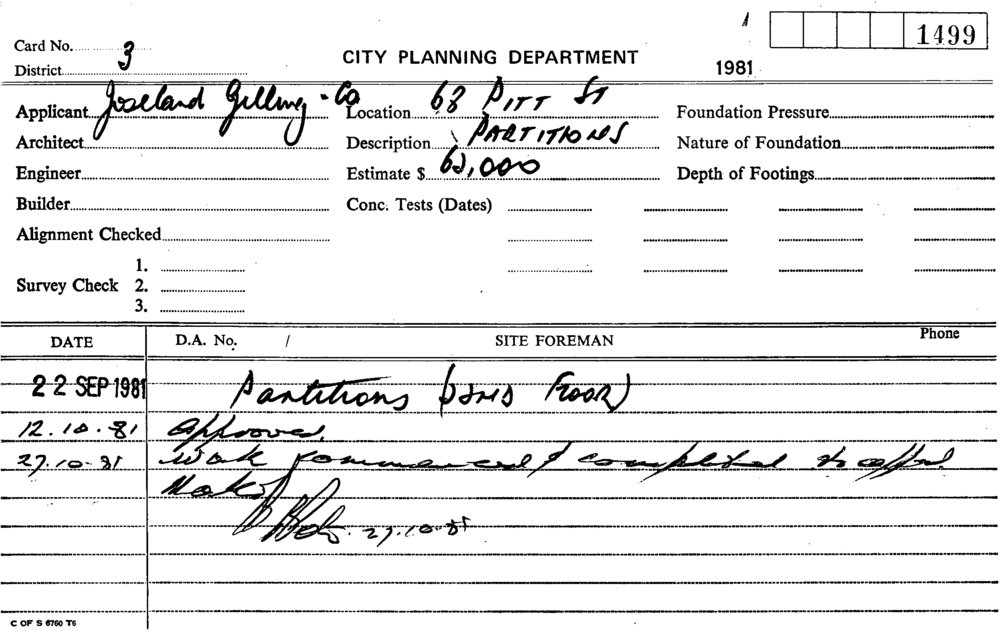 1 1499
Card No. 3 CITY PLANNING DEPARTMENT
District 1981
Applicant Joseland Gilling - Co Location 68 PITT ST Foundation Pressure
Architect Description PARTITIONS Nature of Foundation
Engineer Estimate $ 62,000 Depth of Footings
Builder Conc. Tests (Dates)
Alignment Checked
1.
Survey Check 2.
3.
DATE D.A. No. / SITE FOREMAN Phone
22 SEP 1981 Partitions FLOOR)
12.10.81 Approved.
27.10.81 Work commenced & completed to
27.10.81
C OF S 6760 T6